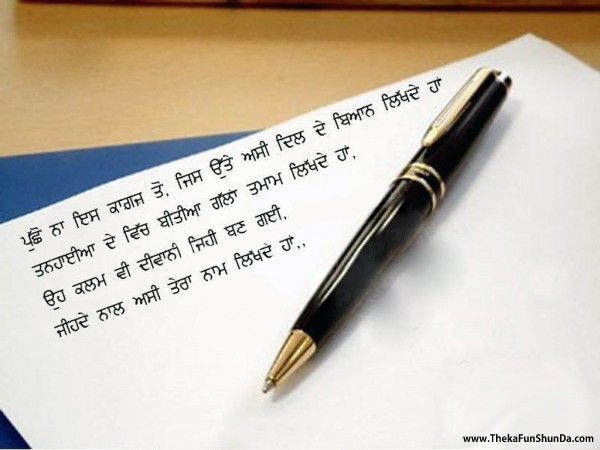 ਪੁੱਛੋ ਨਾ ਇਸ ਕਾਗਜ ਤੋਂ, ਜਿਸ ਉੱਤੇ ਅਸੀ ਦਿਲ ਦੇ ਬਿਆਨ ਲਿੱਖਦੇ ਹਾਂ
ਤਨਹਾਈਆ ਦੇ ਵਿੱਚ ਬੀਤੀਆ ਗੱਲਾਂ ਤਮਾਮ ਲਿੱਖਦੇ ਹਾਂ,
ਉਹ ਕਲਮ ਵੀ ਦੀਵਾਨੀ ਜਿਹੀ ਬਣ ਗਈ,
ਜੀਹਦੇ ਨਾਲ ਅਸੀ ਤੇਰਾ ਨਾਮ ਲਿੱਖਦੇ ਹਾਂ,,
www.ThekaFunShunDa.com